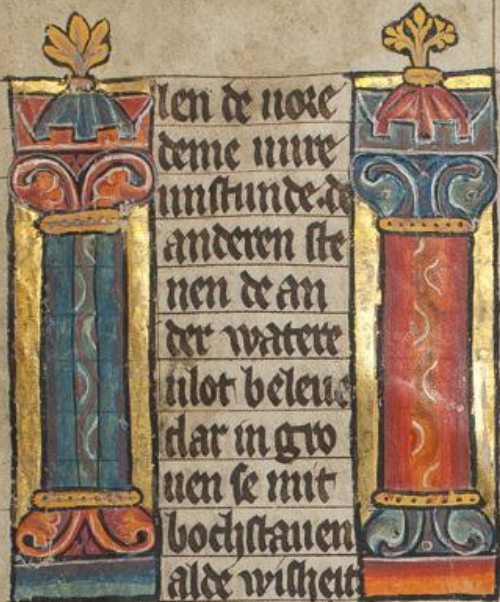 len de uore
deme uure
unstunde. de
anderen ste
nen de an
der watere
ulot beleue
dar in gro
uen se mit
bochstauen
alde wisheit